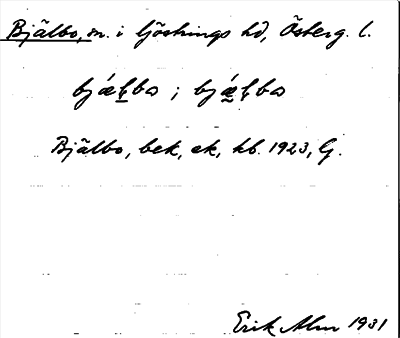 Bjälbo, sn. i Göstrings hd, Österg. l.
bjǽḷbo ; bjǽ̣ḷbo
Bjälbo, bek, ek, hb. 1923, G.
Erik Alm 1931